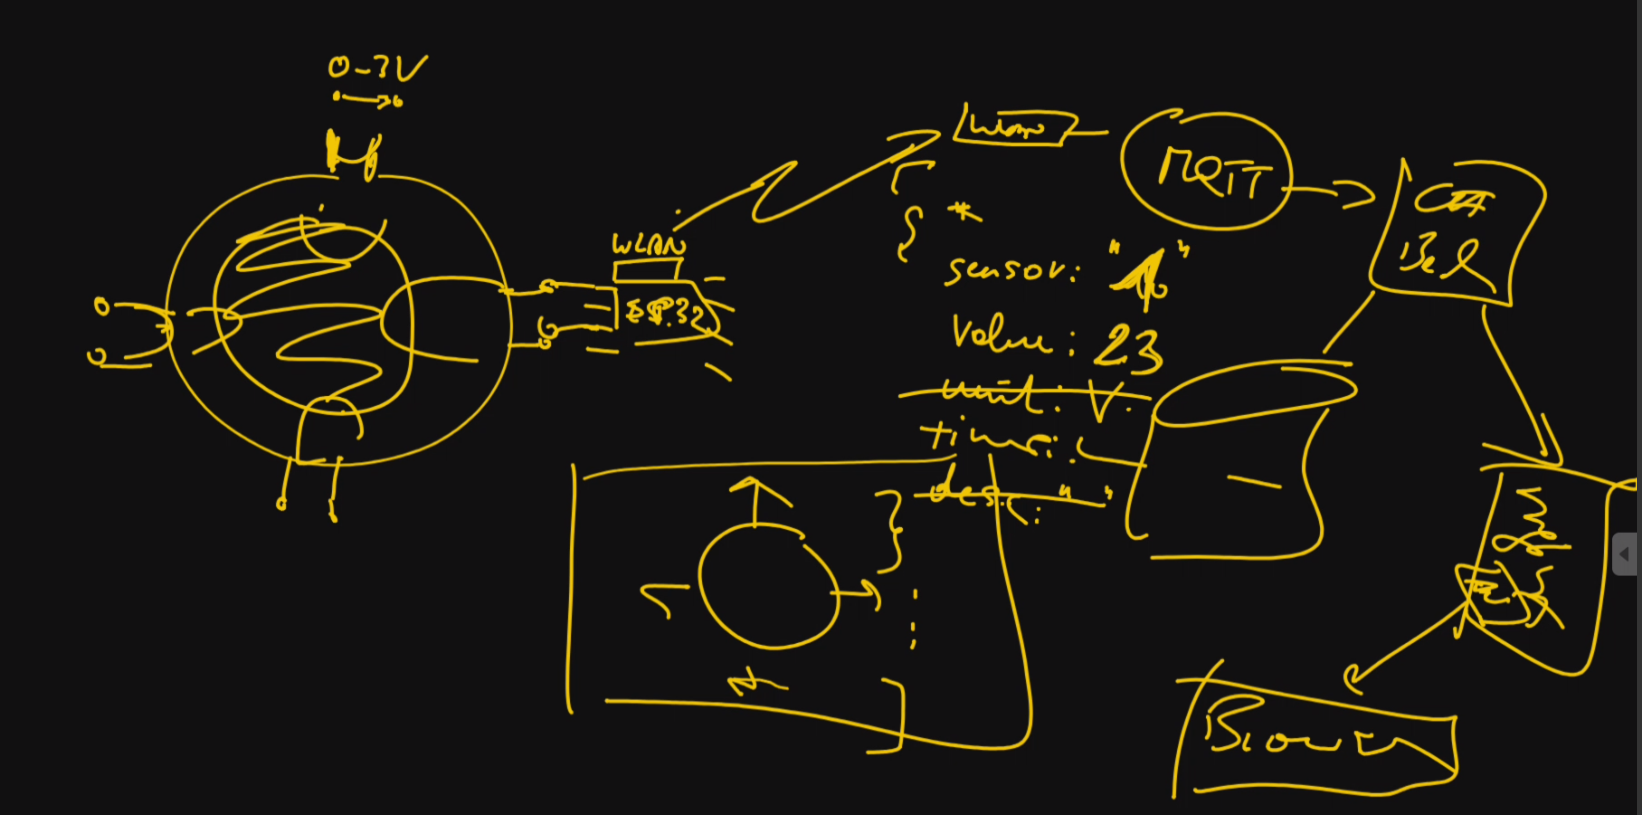 0-3V
WLAN
ESP32
WLAN
MQTT
[
{
sensor: "1"
Value: 23
unit: V.
time:
desc: " "
}
]
Browser